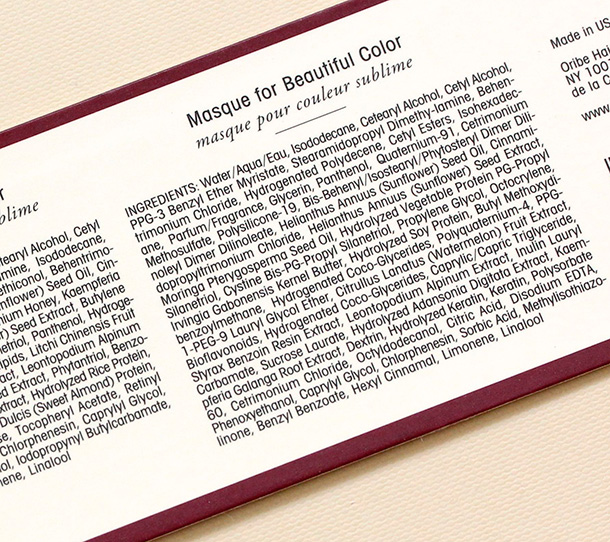 Masque for Beautiful Color
masque pour couleur sublime
INGREDIENTS: Water/Aqua/Eau, Isododecane, Cetearyl Alcohol, Cetyl Alcohol,
PPG-3 Benzyl Ether Myristate, Stearamidopropyl Dimethy-lamine, Behen-
trimonium Chloride, Hydrogenated Polydecene, Cetyl Esters, Isohexadec-
ane, Parfum/Fragrance, Glycerin, Panthenol, Quaternium-91, Cetrimonium
Methosulfate, Polysilicone-19, Bis-Behenyl/Isostearyl/Phytosteryl Dimer Dili-
noleyl Dimer Dilinoleate, Helianthus Annuus (Sunflower) Seed Oil, Cinnami-
dopropyltrimonium Chloride, Helianthus Annuus (Sunflower) Seed Extract,
Moringa Pterygosperma Seed Oil, Hydrolyzed Vegetable Protein PG-Propyl
Silanetriol, Cystine Bis-PG-Propyl Silanetriol, Propylene Glycol, Octocrylene,
Irvingia Gabonensis Kernel Butter, Hydrolyzed Soy Protein, Butyl Methoxydi-
benzoylmethane, Hydrogenated Coco-Glycerides, Polyquaternium-4, PPG-
1-PEG-9 Lauryl Glycol Ether, Citrullus Lanatus (Watermelon) Fruit Extract,
Bioflavonoids, Hydrogenated Coco-Glycerides, Caprylic/Capric Triglyceride,
Styrax Benzoin Resin Extract, Leontopodium Alpinum Extract, Inulin Lauryl
Carbamate, Sucrose Laurate, Hydrolyzed Adansonia Digitata Extract, Kaem-
pferia Galanga Root Extract, Dextrin, Hydrolyzed Keratin, Keratin, Polysorbate
60, Cetrimonium Chloride, Octyldodecanol, Citric Acid, Disodium EDTA,
Phenoxyethanol, Caprylyl Glycol, Chlorphenesin, Sorbic Acid, Methylisothiazo-
linone, Benzyl Benzoate, Hexyl Cinnamal, Limonene, Linalool
Alcohol, Cetyl
Isododecane,
Behentrimo-
Seed Oil, Cin-
Honey, Kaempferia
Seed Extract, Butylene
Panthenol, Hydroge-
Litchi Chinensis Fruit
Leontopodium Alpinum
Extract, Phytantriol, Benzo-
Hydrolyzed Rice Protein,
Dulcis (Sweet Almond) Protein,
Tocopheryl Acetate, Retinyl
Chlorphenesin, Caprylyl Glycol,
Iodopropynyl Butylcarbamate,
Linalool
Made in US
Oribe Hai
NY 100
de la
www